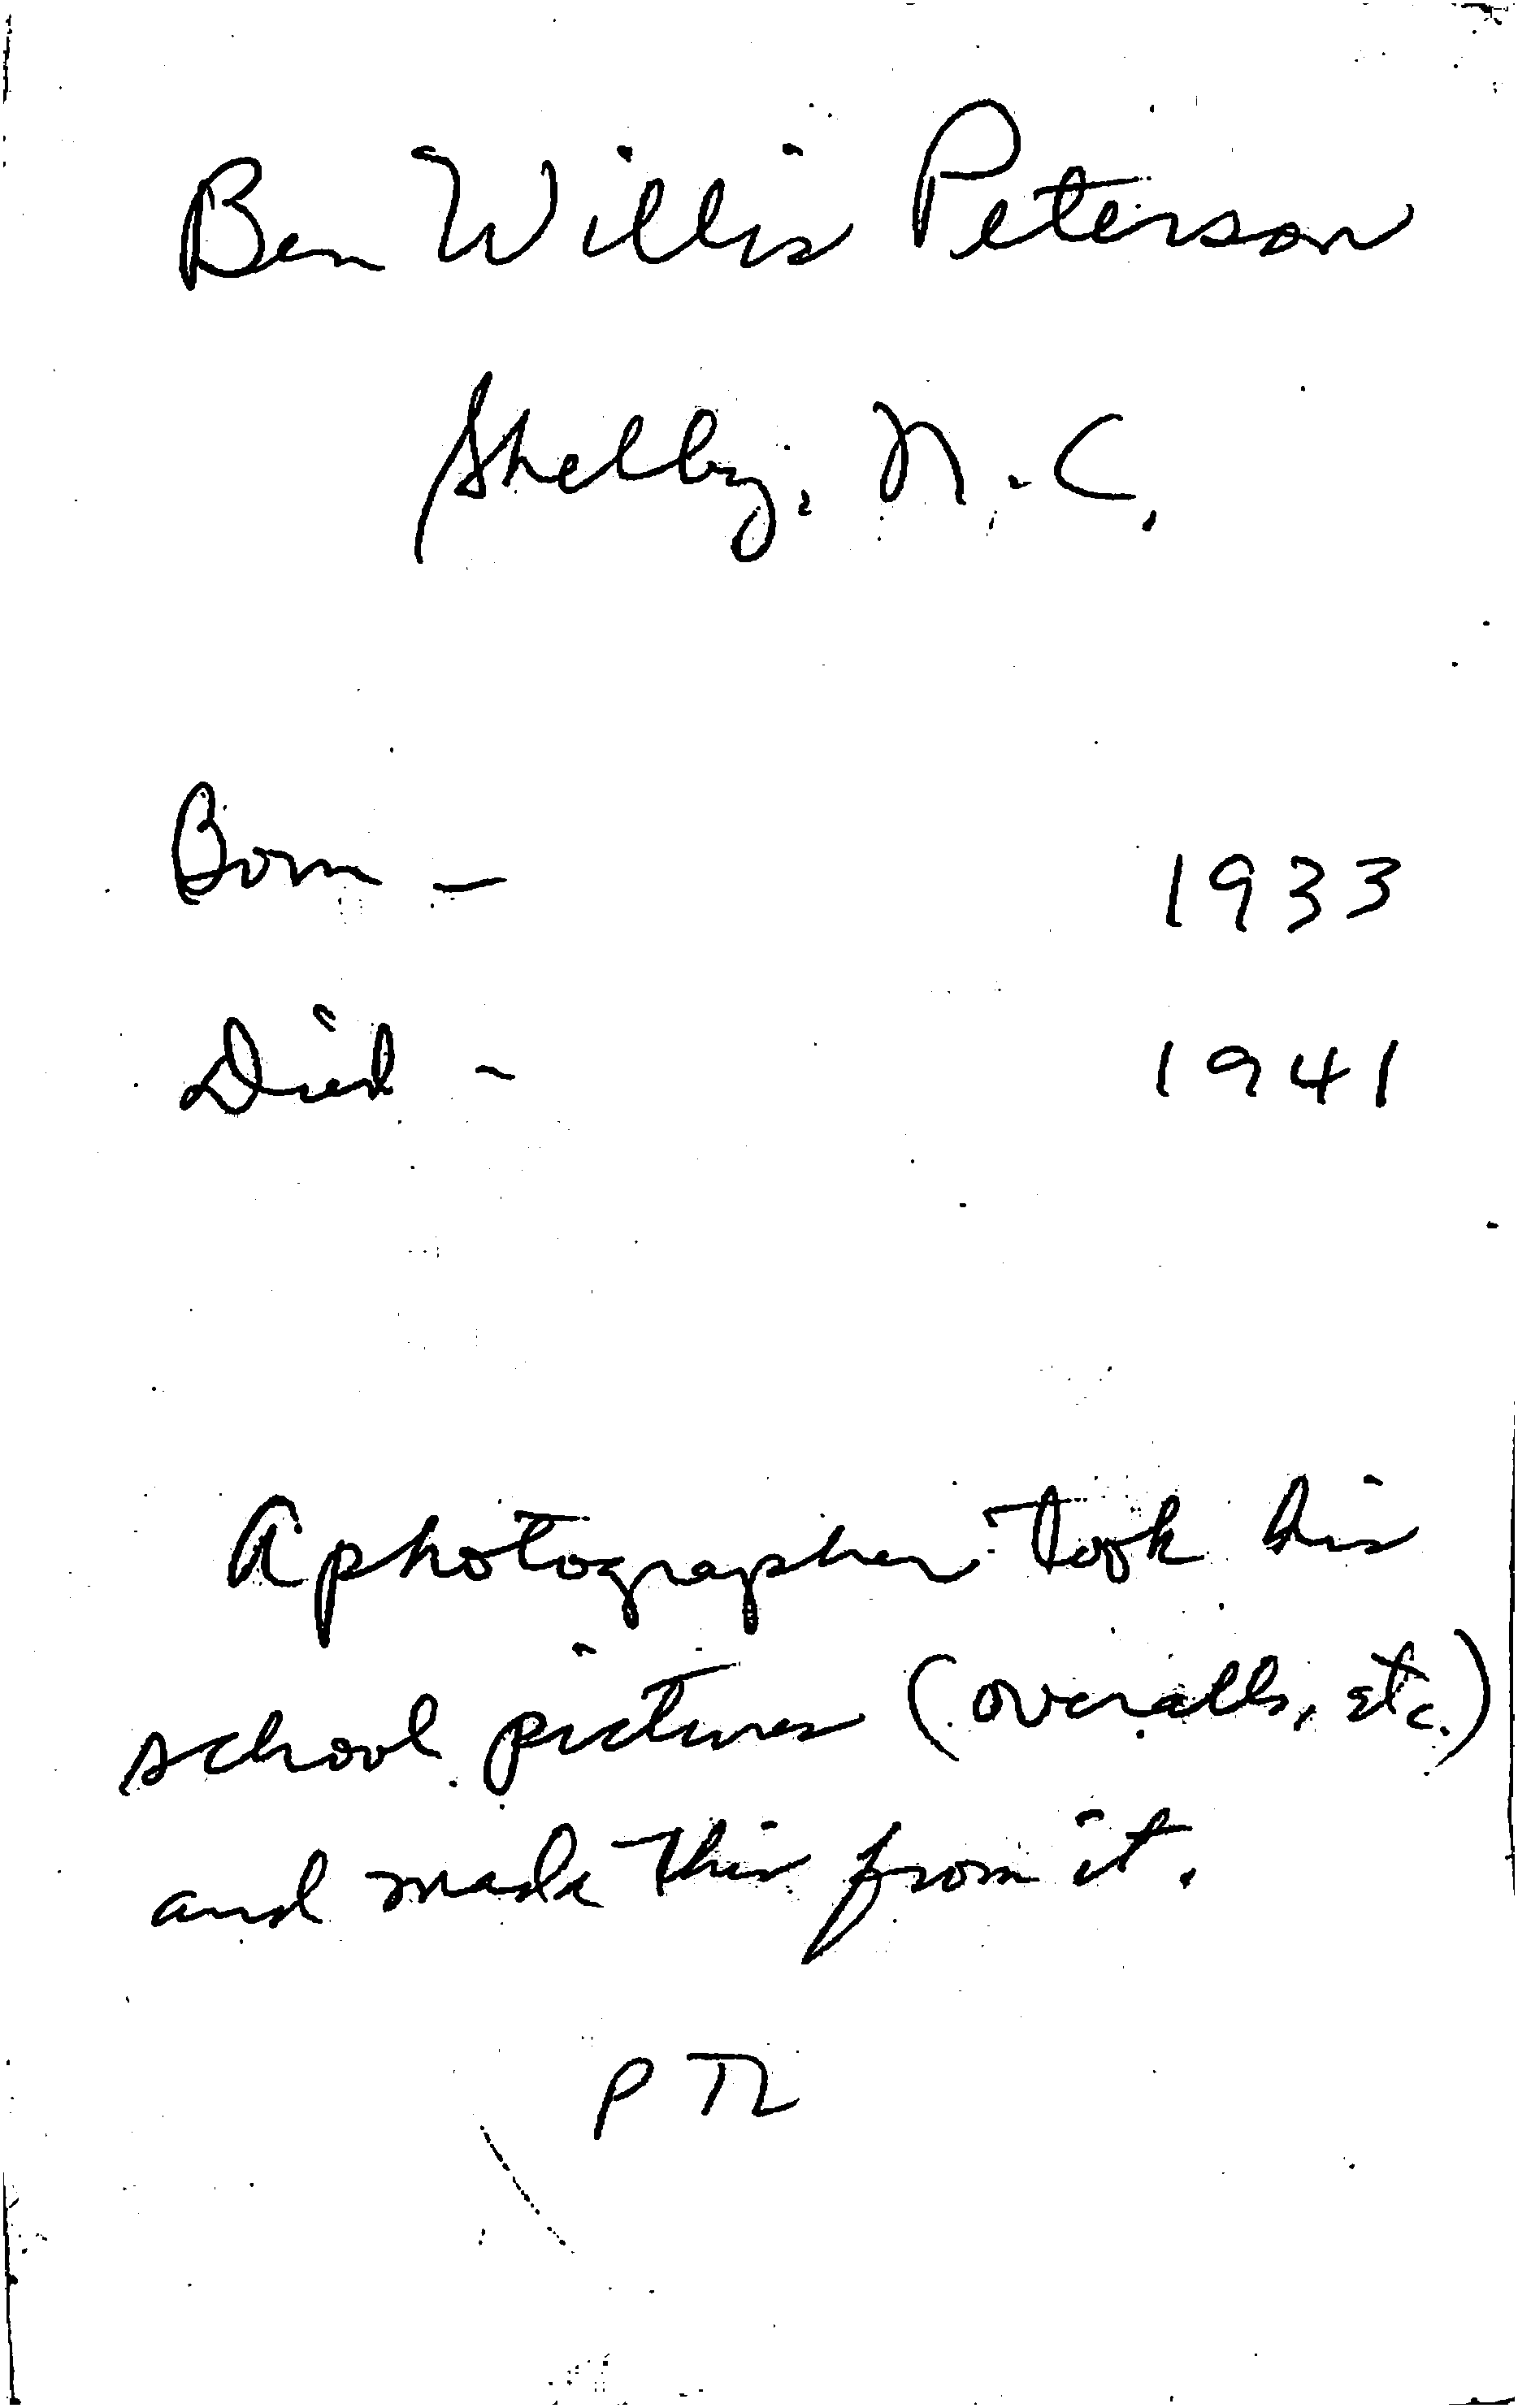 Ben Willis Peterson
Shelby, N.C.
Born - 1933
Died - 1941
A photographer took his
school pictures (overalls, etc.)
and made this from it.